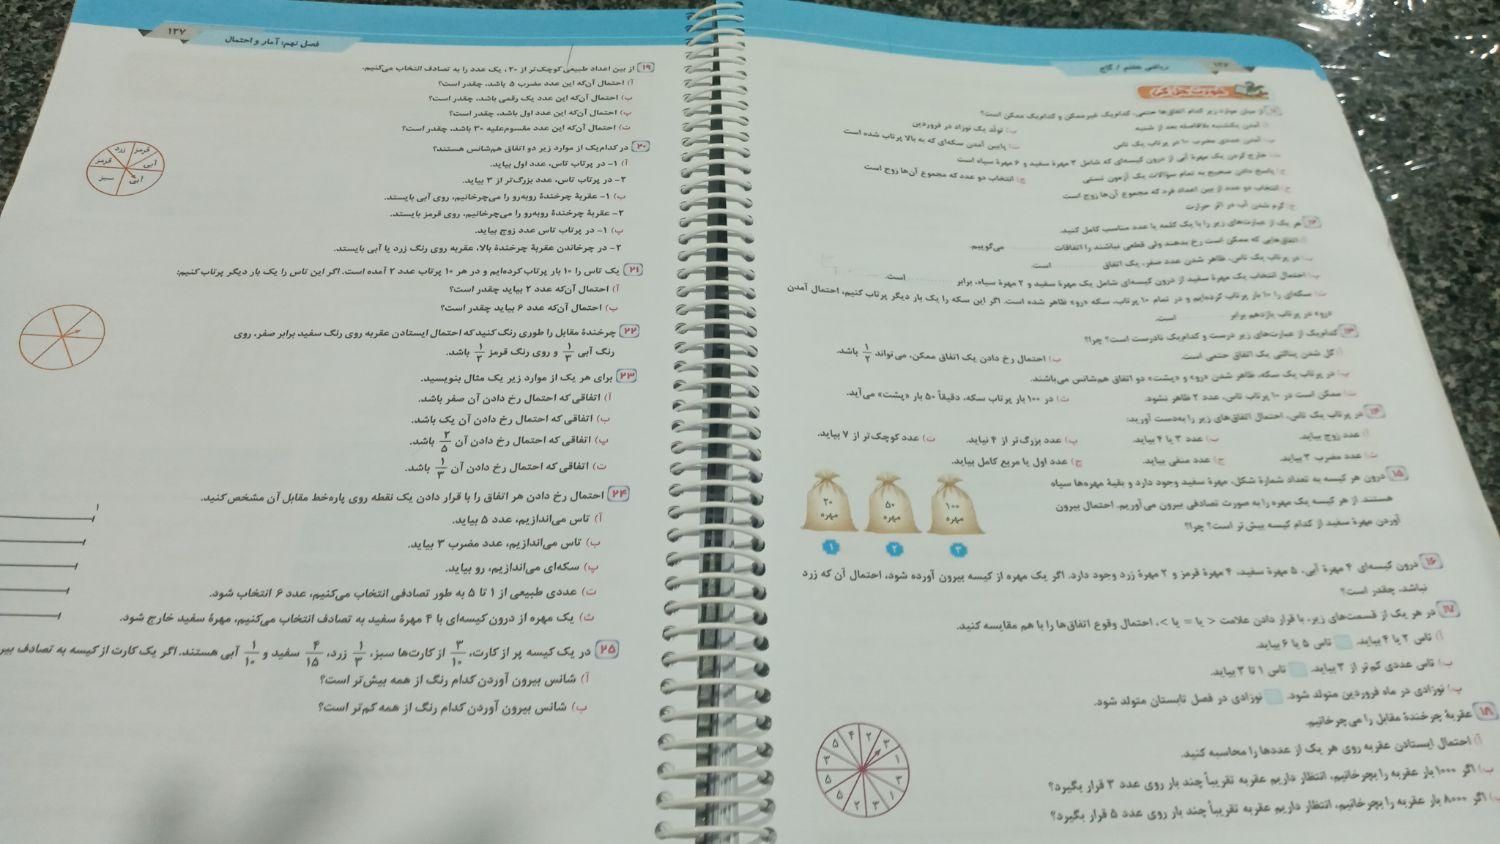 ۱۲۶
ریاضی هفتم / گاج
۱۱ از میان موارد زیر کدام اتفاق‌ها حتمی، کدام‌یک غیرممکن و کدام‌یک ممکن است؟
آ) آمدن یکشنبه بلافاصله بعد از شنبه
ب) تولد یک نوزاد در فروردین
پ) آمدن عددی مضرب ۱۰ در پرتاب یک تاس
ت) پایین آمدن سکه‌ای که به بالا پرتاب شده است
ث) خارج کردن یک مهرهٔ آبی از درون کیسه‌ای که شامل ۳ مهرهٔ سفید و ۶ مهرهٔ سیاه است
ج) پاسخ دادن صحیح به تمام سوالات یک آزمون تستی
چ) انتخاب دو عدد که مجموع آن‌ها زوج است
ح) انتخاب دو عدد از بین اعداد فرد که مجموع آن‌ها زوج است
خ) گرم شدن آب در اثر حرارت
۱۲ هر یک از عبارت‌های زیر را با یک کلمه یا عدد مناسب کامل کنید.
آ) اتفاق‌هایی که ممکن است رخ بدهند ولی قطعی نباشند را اتفاقات ............ می‌گوییم.
ب) در پرتاب یک تاس، ظاهر شدن عدد صفر، یک اتفاق ............ است.
پ) احتمال انتخاب یک مهرهٔ سفید از درون کیسه‌ای شامل یک مهرهٔ سفید و ۲ مهرهٔ سیاه، برابر ............ است.
ت) سکه‌ای را ۱۰ بار پرتاب کرده‌ایم و در تمام ۱۰ پرتاب، سکه «رو» ظاهر شده است. اگر این سکه را یک بار دیگر پرتاب کنیم، احتمال آمدن
«رو» در پرتاب یازدهم برابر ............ است.
۱۳ کدام‌یک از عبارت‌های زیر درست و کدام‌یک نادرست است؟ چرا؟
آ) گل شدن پنالتی یک اتفاق حتمی است.
ب) احتمال رخ دادن یک اتفاق ممکن، می‌تواند ۱/۲ باشد.
پ) در پرتاب یک سکه، ظاهر شدن «رو» و «پشت» دو اتفاق هم‌شانس می‌باشند.
ت) ممکن است در ۱۰ پرتاب تاس، عدد ۲ ظاهر نشود.
ث) در ۱۰۰ بار پرتاب سکه، دقیقاً ۵۰ بار «پشت» می‌آید.
۱۴ در پرتاب یک تاس، احتمال اتفاق‌های زیر را به‌دست آورید:
آ) عدد زوج بیاید.
ب) عدد ۳ یا ۴ بیاید.
پ) عدد بزرگ‌تر از ۴ نیاید.
ت) عدد کوچک‌تر از ۷ بیاید.
ث) عدد مضرب ۳ بیاید.
ج) عدد منفی بیاید.
چ) عدد اول یا مربع کامل بیاید.
۱۵ درون هر کیسه به تعداد شمارهٔ شکل، مهرهٔ سفید وجود دارد و بقیهٔ مهره‌ها سیاه
هستند. از هر کیسه یک مهره را به صورت تصادفی بیرون می‌آوریم. احتمال بیرون
آوردن مهرهٔ سفید از کدام کیسه بیش‌تر است؟ چرا؟
۲۰ مهره
۵۰ مهره
۱۰۰ مهره
۱
۲
۳
۱۶ درون کیسه‌ای ۴ مهرهٔ آبی، ۵ مهرهٔ سفید، ۴ مهرهٔ قرمز و ۲ مهرهٔ زرد وجود دارد. اگر یک مهره از کیسه بیرون آورده شود، احتمال آن که زرد
نباشد، چقدر است؟
۱۷ در هر یک از قسمت‌های زیر، با قرار دادن علامت < یا = یا >، احتمال وقوع اتفاق‌ها را با هم مقایسه کنید.
آ) تاس ۲ یا ۴ بیاید. تاس ۵ یا ۶ بیاید.
ب) تاس عددی کم‌تر از ۳ بیاید. تاس ۱ تا ۳ بیاید.
پ) نوزادی در ماه فروردین متولد شود. نوزادی در فصل تابستان متولد شود.
۱۸ عقربهٔ چرخندهٔ مقابل را می‌چرخانیم.
آ) احتمال ایستادن عقربه روی هر یک از عددها را محاسبه کنید.
ب) اگر ۱۰۰۰ بار عقربه را بچرخانیم، انتظار داریم عقربه تقریباً چند بار روی عدد ۳ قرار بگیرد؟
پ) اگر ۸۰۰۰ بار عقربه را بچرخانیم، انتظار داریم عقربه تقریباً چند بار روی عدد ۵ قرار بگیرد؟
فصل نهم: آمار و احتمال
۱۲۷
۱۹ از بین اعداد طبیعی کوچک‌تر از ۲۰، یک عدد را به تصادف انتخاب می‌کنیم.
آ) احتمال آن‌که این عدد مضرب ۵ باشد، چقدر است؟
ب) احتمال آن‌که این عدد یک رقمی باشد، چقدر است؟
پ) احتمال آن‌که این عدد اول باشد، چقدر است؟
ت) احتمال آن‌که این عدد مقسوم‌علیه ۳۰ باشد، چقدر است؟
۲۰ در کدام‌یک از موارد زیر دو اتفاق هم‌شانس هستند؟
آ) ۱- در پرتاب تاس، عدد اول بیاید.
۲- در پرتاب تاس، عدد بزرگ‌تر از ۳ بیاید.
ب) ۱- عقربهٔ چرخندهٔ روبه‌رو را می‌چرخانیم، روی آبی بایستد.
۲- عقربهٔ چرخندهٔ روبه‌رو را می‌چرخانیم، روی قرمز بایستد.
پ) ۱- در پرتاب تاس عدد زوج بیاید.
۲- در چرخاندن عقربهٔ چرخندهٔ بالا، عقربه روی رنگ زرد یا آبی بایستد.
قرمز
زرد
قرمز
آبی
سبز
آبی
۲۱ یک تاس را ۱۰ بار پرتاب کرده‌ایم و در هر ۱۰ پرتاب عدد ۲ آمده است. اگر این تاس را یک بار دیگر پرتاب کنیم:
آ) احتمال آن‌که عدد ۲ بیاید چقدر است؟
ب) احتمال آن‌که عدد ۶ بیاید چقدر است؟
۲۲ چرخندهٔ مقابل را طوری رنگ کنید که احتمال ایستادن عقربه روی رنگ سفید برابر صفر، روی
رنگ آبی ۱/۳ و روی رنگ قرمز ۱/۲ باشد.
۲۳ برای هر یک از موارد زیر یک مثال بنویسید.
آ) اتفاقی که احتمال رخ دادن آن صفر باشد.
ب) اتفاقی که احتمال رخ دادن آن یک باشد.
پ) اتفاقی که احتمال رخ دادن آن ۲/۵ باشد.
ت) اتفاقی که احتمال رخ دادن آن ۱/۳ باشد.
۲۴ احتمال رخ دادن هر اتفاق را با قرار دادن یک نقطه روی پاره‌خط مقابل آن مشخص کنید.
آ) تاس می‌اندازیم، عدد ۵ بیاید.
۱
ب) تاس می‌اندازیم، عدد مضرب ۳ بیاید.
پ) سکه‌ای می‌اندازیم، رو بیاید.
ت) عددی طبیعی از ۱ تا ۵ به طور تصادفی انتخاب می‌کنیم، عدد ۶ انتخاب شود.
ث) یک مهره از درون کیسه‌ای با ۴ مهرهٔ سفید به تصادف انتخاب می‌کنیم، مهرهٔ سفید خارج شود.
۲۵ در یک کیسه پر از کارت، ۳/۱۰ از کارت‌ها سبز، ۱/۳ زرد، ۴/۱۵ سفید و ۱/۱۰ آبی هستند. اگر یک کارت از کیسه به تصادف بیر
آ) شانس بیرون آوردن کدام رنگ از همه بیش‌تر است؟
ب) شانس بیرون آوردن کدام رنگ از همه کم‌تر است؟